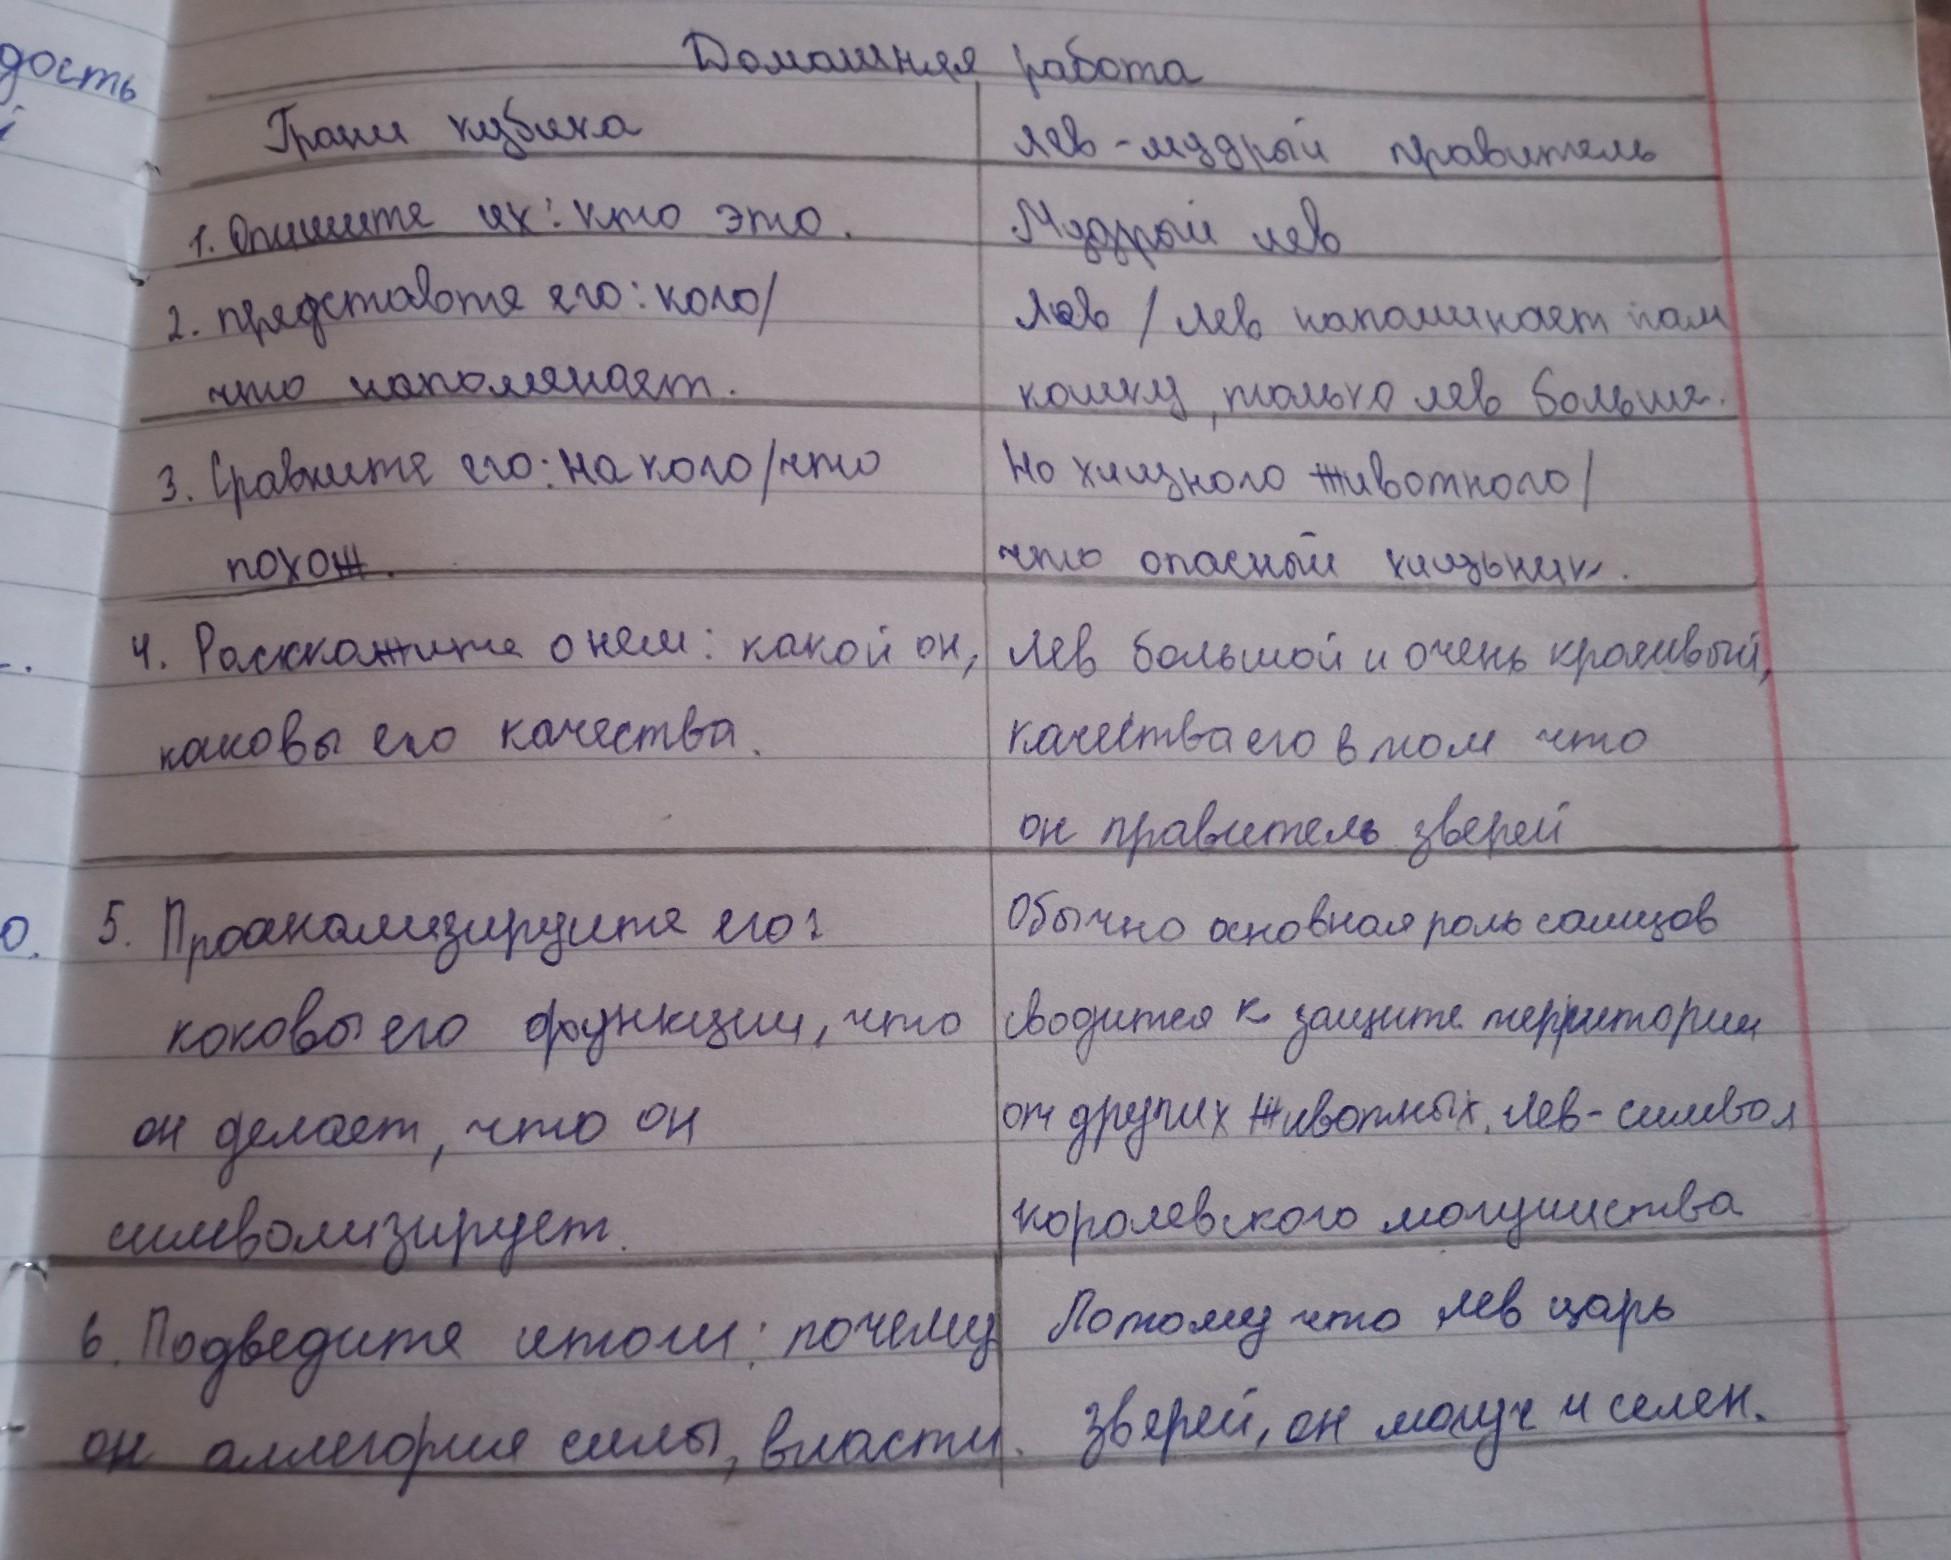 дость
Домашняя работа
Грани кубика
Лев - мудрый правитель
1. Опишите их: кто это.
Мудрый лев
2. представте его: кого/
что напоменает.
Лев / лев напоминает нам
кошку, только лев больше.
3. Сравните его: на кого/что
похож.
На хищного животного/
что опасный хищьник.
4. Расскажите о нем: какой он,
каковы его качества.
Лев большой и очень красивый,
качества его в том что
он правитель зверей
5. Проанализируите его:
коковы его функции, что
он делает, что он
символизирует.
Обычно основная роль самцов
сводится к защите территории
от других животных. Лев - символ
королевского могущиства
6. Подведите итоги: почему
он аллегория силы, власти.
Потому что лев царь
зверей, он могуч и селен.